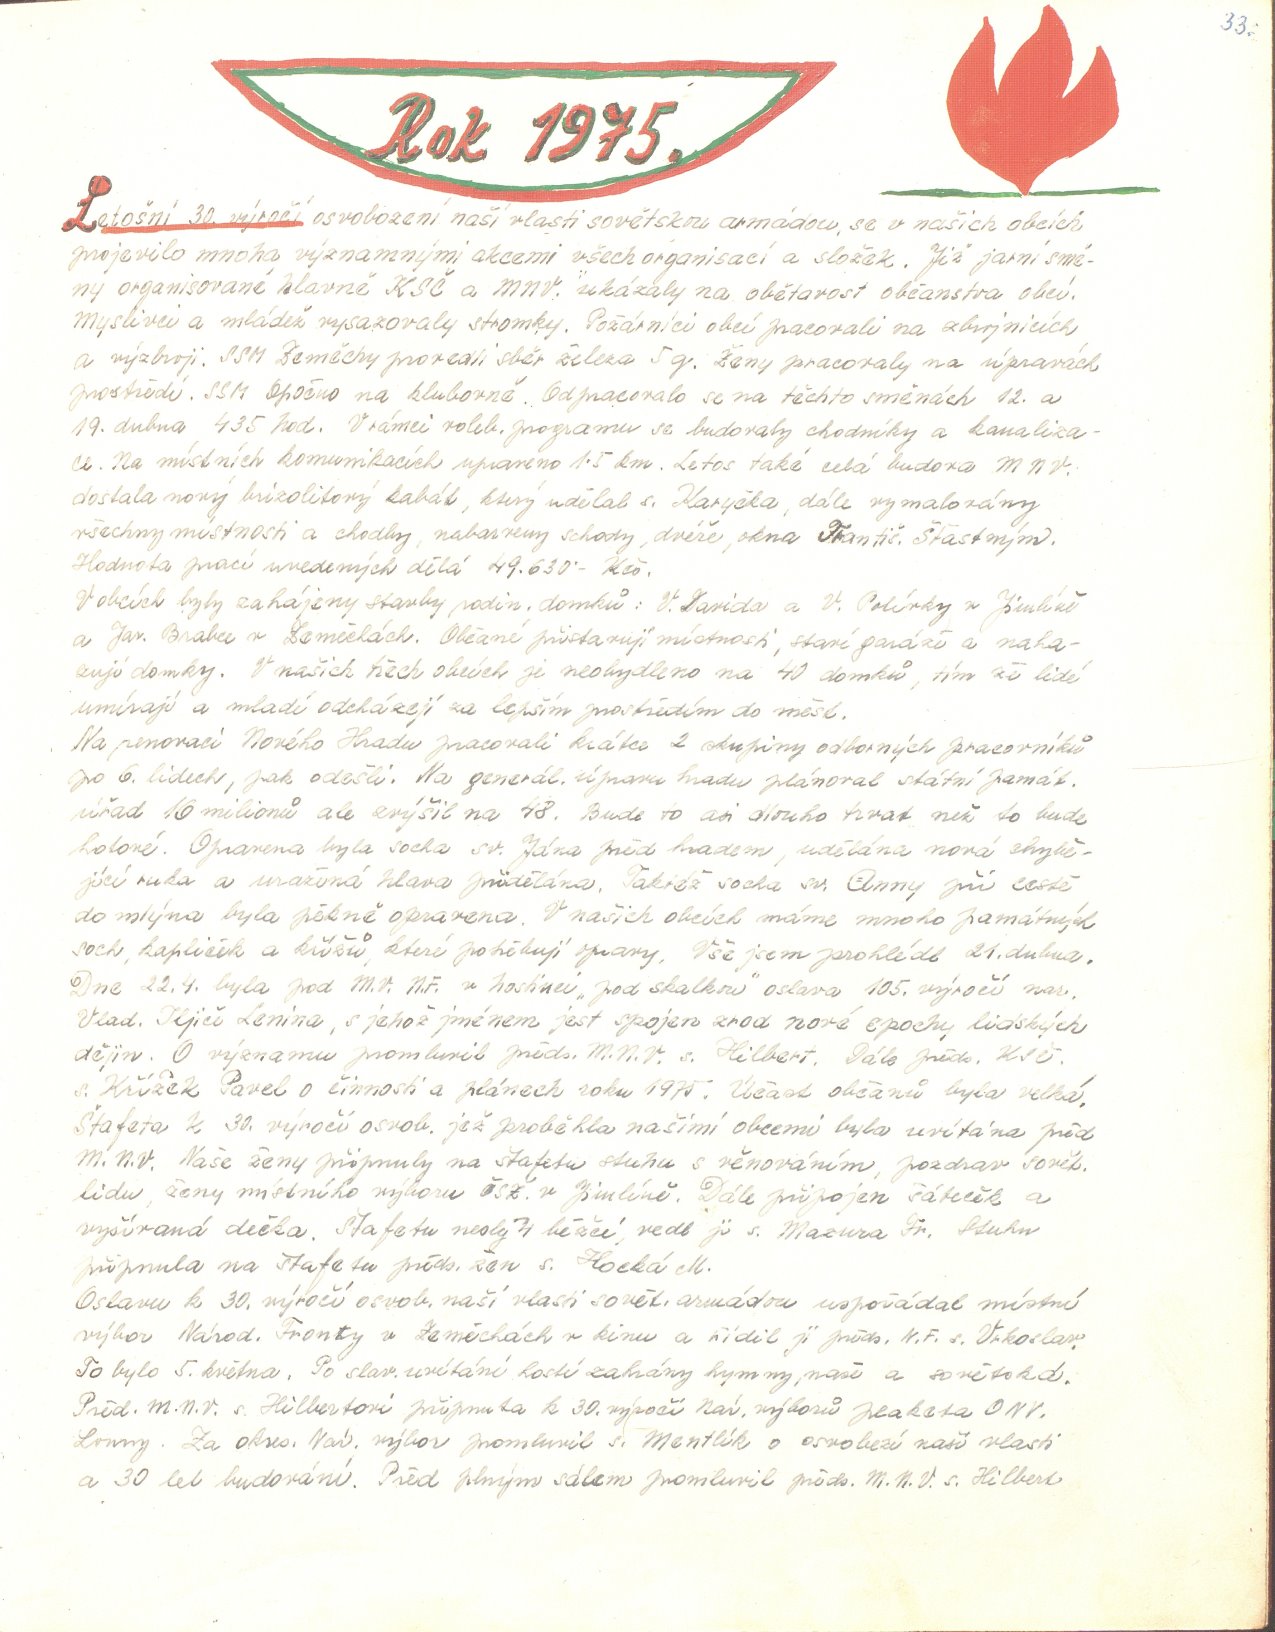 33.
Rok 1975.
Letošní 30. výročí osvobození naší vlasti sovětskou armádou, se v našich obcích
projevilo mnoha významnými akcemi všech organisací a složek. Již jarní smě-
ny organisované hlavně KSČ a MNV. ukázaly na obětavost občanstva obcí.
Myslivci a mládež vysazovaly stromky. Požárníci obcí pracovali na zbrojnicích
a výzbroji. SSM Zeměchy provedli sběr železa 5 q. Ženy pracovaly na úpravách
prostředí. SSM Opočno na klubovně. Odpracovalo se na těchto směnách 12. a
19. dubna 435 hod. V rámci voleb. programu se budovaly chodníky a kanaliza-
ce. Na místních komunikacích upraveno 1.5 km. Letos také celá budova MNV.
dostala nový brizolitový kabát, který udělal s. Karyčka, dále vymalovány
všechny místnosti a chodby, nabarveny schody, dvéře, okna Františ. Šťastným.
Hodnota prací uvedených dělá 49.630.- Kčs.
V obcích byly zahájeny stavby rodin. domků: V. Davida a V. Polívky v Jimlíně
a Jar. Brabce v Zeměchách. Občané přistavují místnosti, staví garáže a naha-
zují domky. V našich třech obcích je neobydleno na 40 domků, tím že lidé
umírají a mladí odcházejí za lepším prostředím do měst.
Na renovaci Nového Hradu pracovali krátce 2 skupiny odborných pracovníků
po 6. lidech, pak odešli. Na generál. úpravu hradu plánoval státní památ.
úřad 16 milionů ale zvýšil na 48. Bude to asi dlouho trvat než to bude
hotové. Opravena byla socha sv. Jána před hradem, udělána nová chybě-
jící ruka a uražená hlava přidělána. Taktéž socha sv. Anny při cestě
do mlýna byla pěkně opravena. V našich obcích máme mnoho památných
soch, kapliček a křížů, které potřebují opravy. Vše jsem prohlédl 21. dubna.
Dne 22.4. byla pod M.V. N.F. v hostinci „pod skalkou" oslava 105. výročí nar.
Vlad. Iljiče Lenina, s jehož jménem jest spojen zrod nové epochy lidských
dějin. O významu promluvil předs. M.N.V. s. Hilbert. Dále předs. KSČ.
s. Křížek Pavel o činnosti a plánech roku 1975. Účast občanů byla velká.
Štafeta k 30. výročí osvob. jež proběhla našimi obcemi byla uvítána před
M.N.V. Naše ženy připnuly na štafetu stuhu s věnováním, pozdrav sovět.
lidu, ženy místního výboru ČSŽ. v Jimlíně. Dále připojen šáteček a
vyšívaná dečka. Štafetu nesly 4 běžci, vedl ji s. Mazura Fr. Stuhu
připnula na štafetu předs. žen s. Hocká M.
Oslavu k 30. výročí osvob. naší vlasti sovět. armádou uspořádal místní
výbor Národ. Fronty v Zeměchách v kinu a řídil ji předs. N.F. s. Vrkoslav.
To bylo 5. května. Po slav. uvítání hostí zahrány hymny, naše a sovětská.
Před. M.N.V. s. Hilbertovi připnuta k 30. výročí Nár. výborů plaketa ONV.
Louny. Za okres. Nár. výbor promluvil s. Mentlík o osvobození naší vlasti
a 30 let budování. Před plným sálem promluvil předs. M.N.V. s. Hilbert